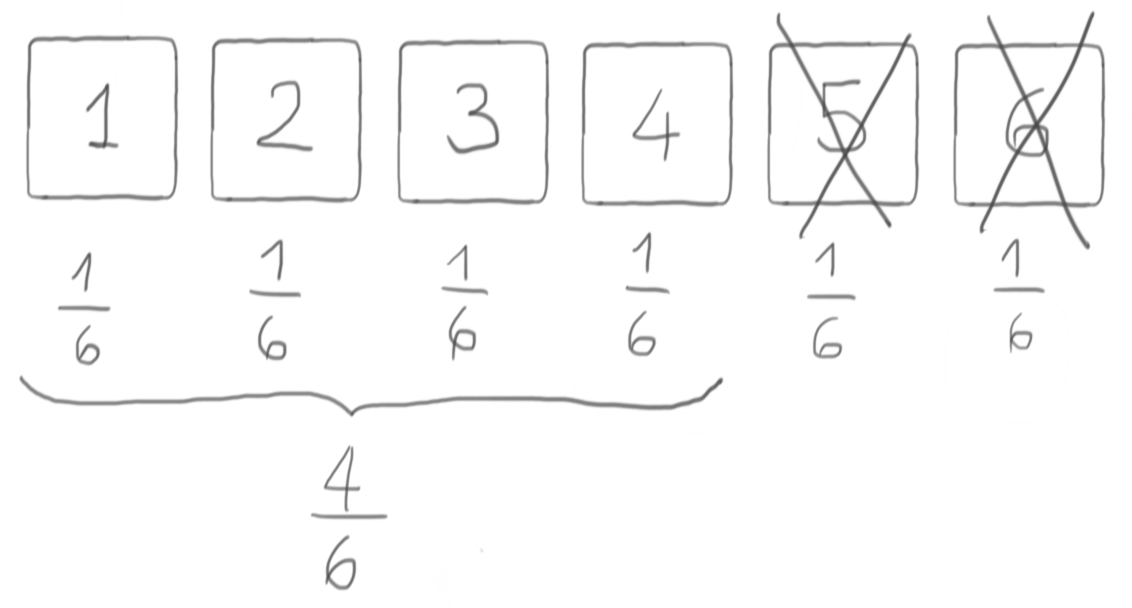 1 2 3 4 5 6
1/6 1/6 1/6 1/6 1/6 1/6
4/6